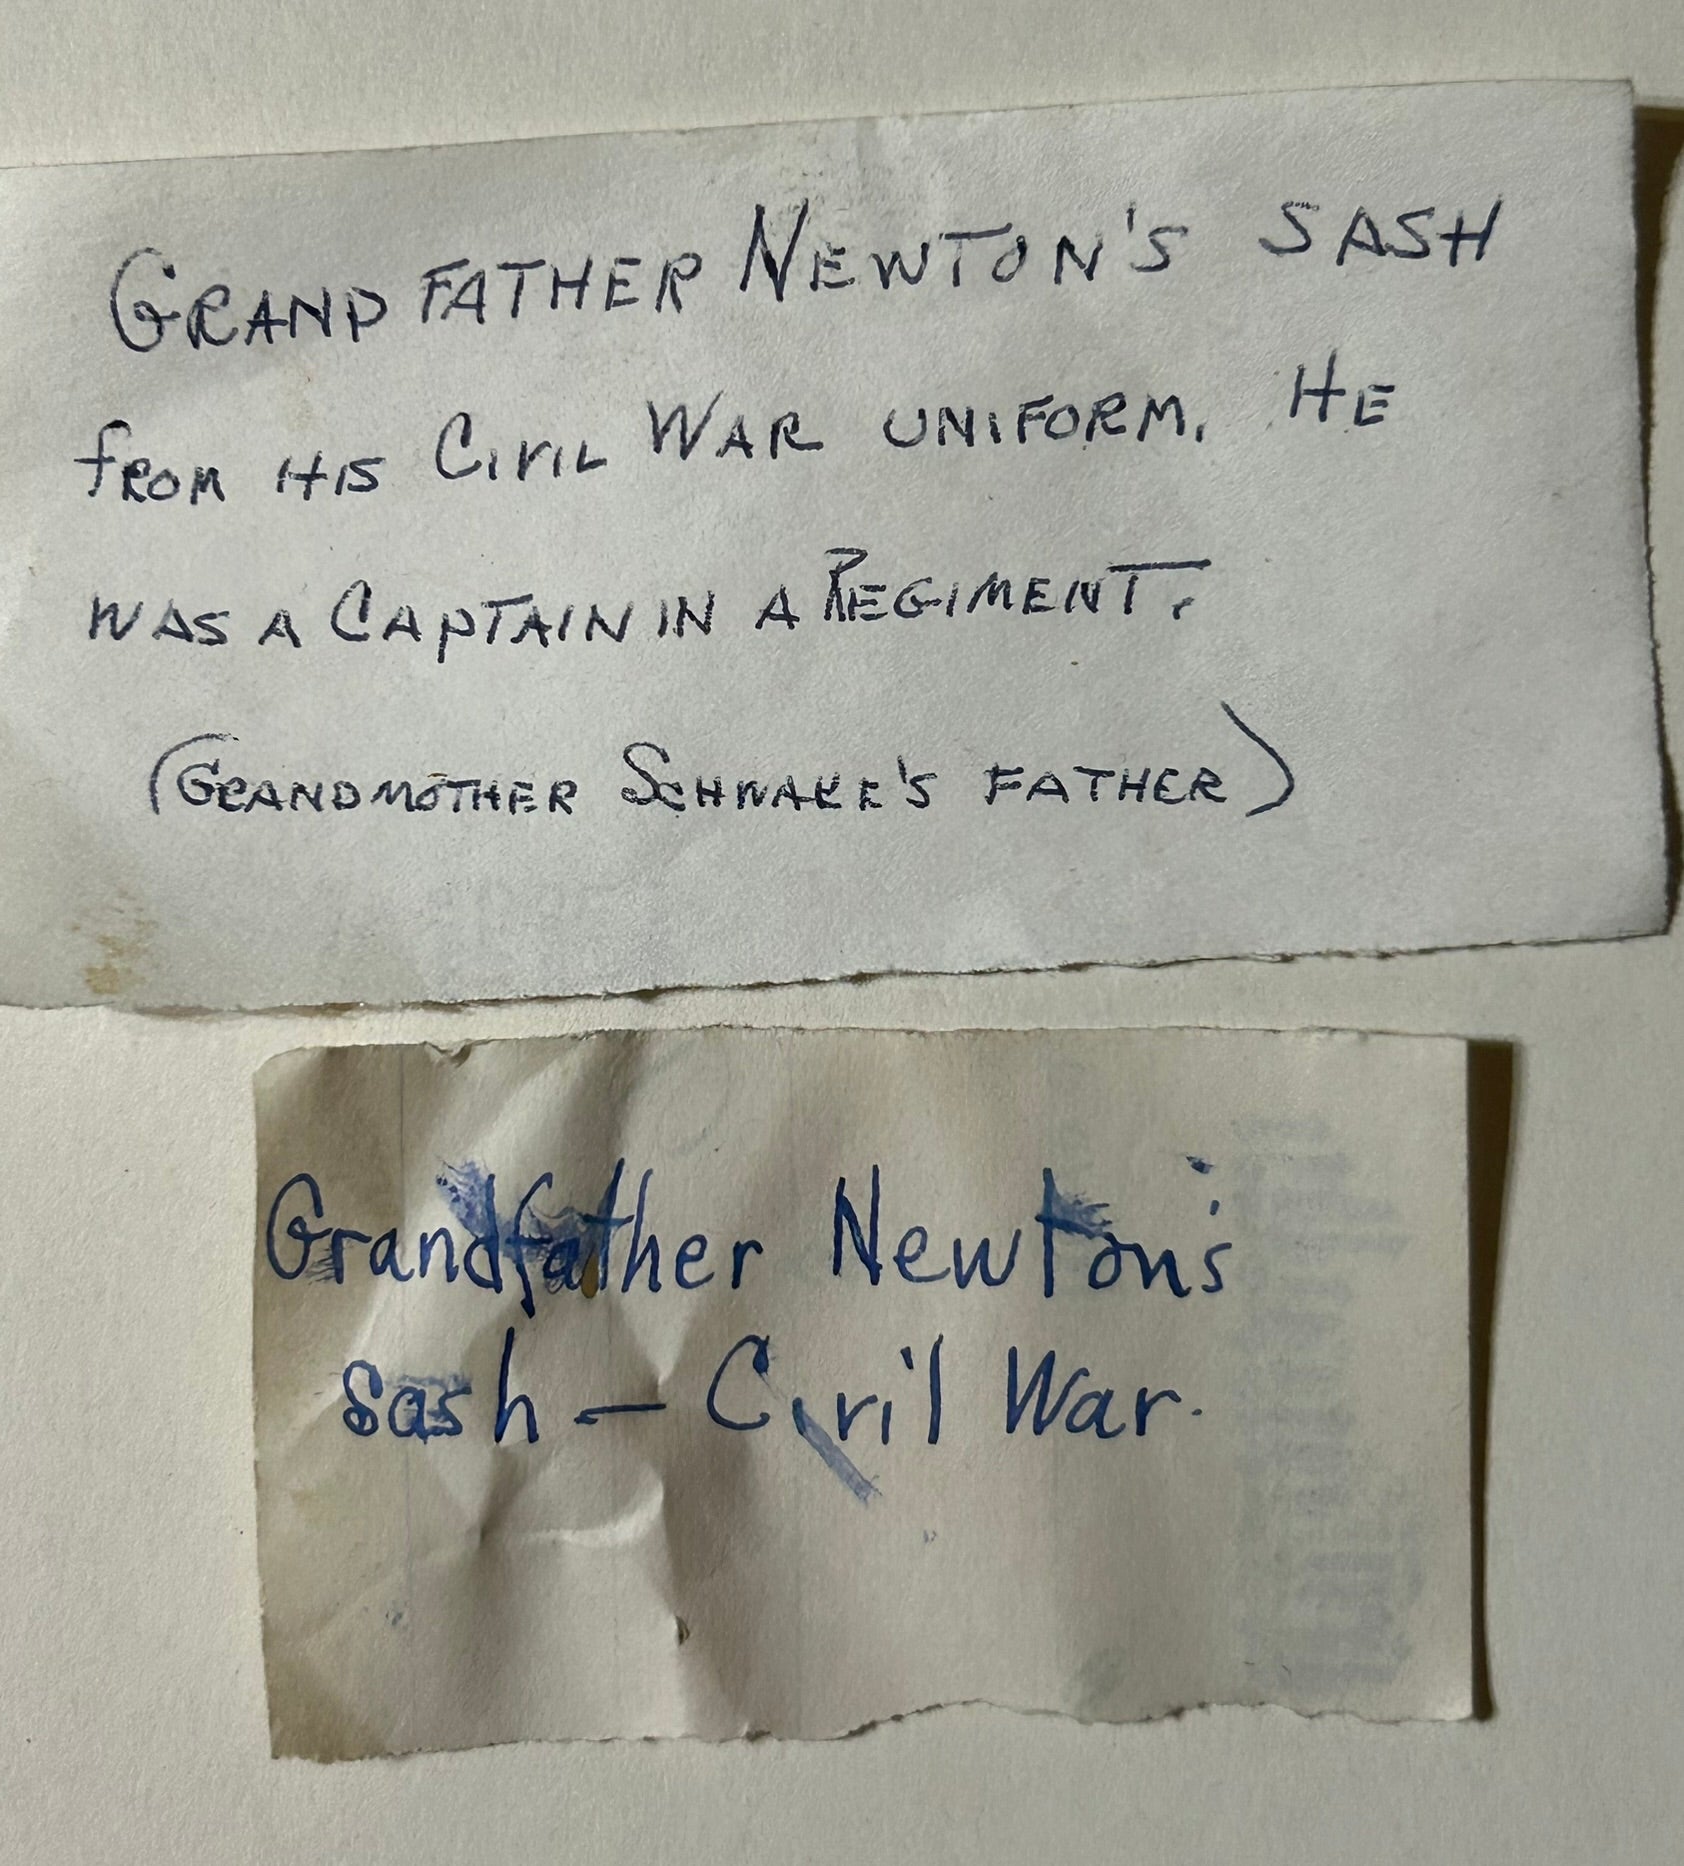 GRANDFATHER NEWTON'S SASH
FROM HIS CIVIL WAR UNIFORM. HE
WAS A CAPTAIN IN A REGIMENT.
(GRANDMOTHER SCHWAKE'S FATHER)
Grandfather Newton's
Sash — Civil War.